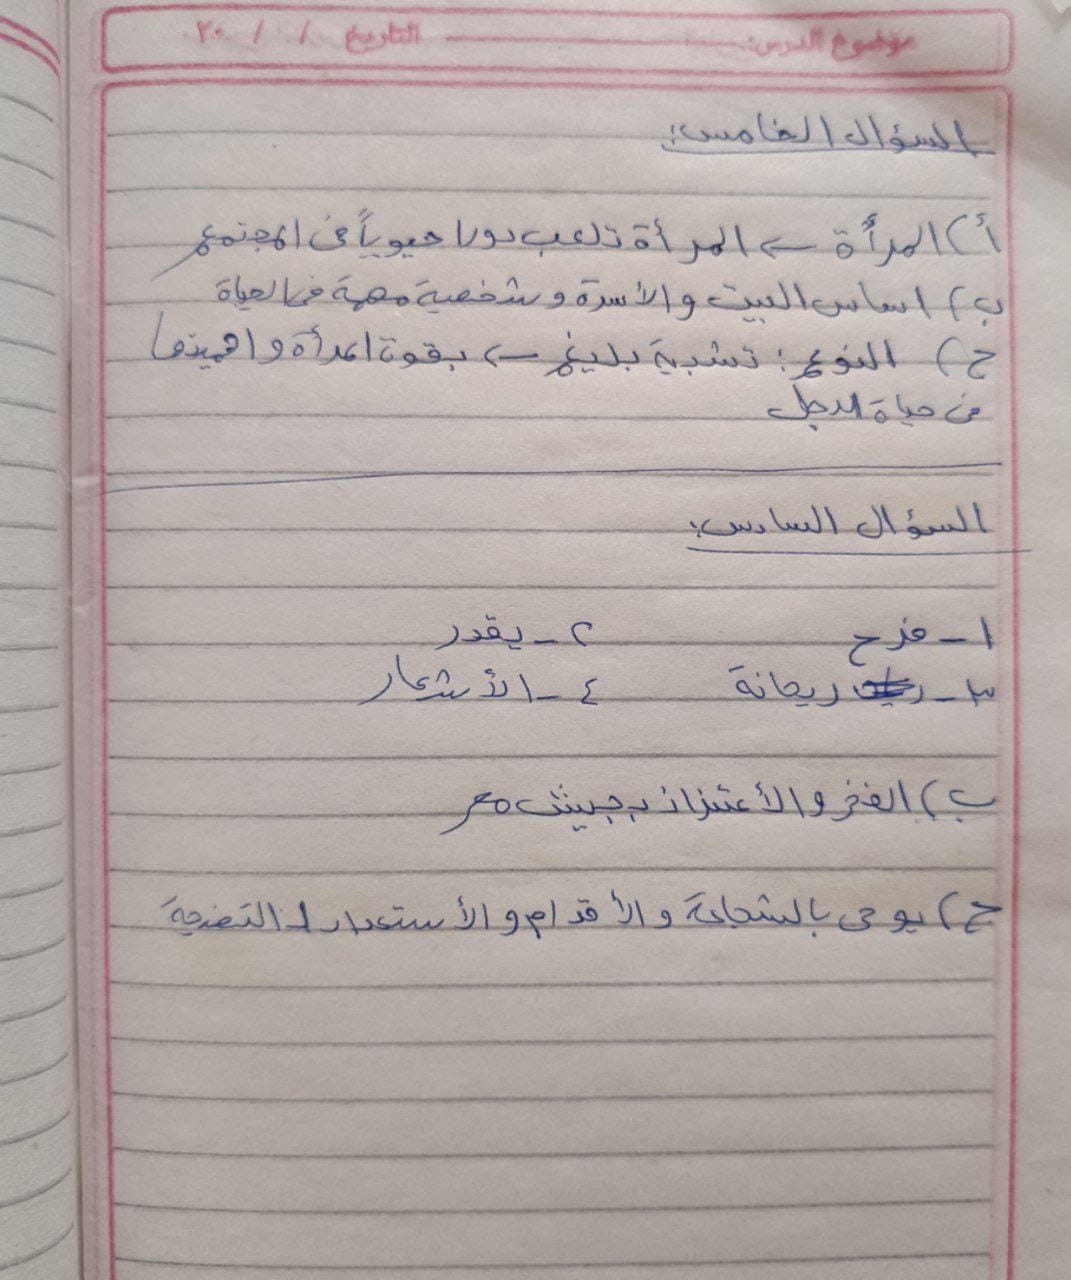 موضوع الدرس: التاريخ / / ٢٠
السؤال الخامس:
أ) المرأة ← المرأة تلعب دورا حيوياً فى المجتمع
ب) اساس البيت والأسرة وشخصية مهمة فى الحياة
ج) النوع: تشبية بليغ ← بقوة المرأة واهميتها
فى حياة الرجل
السؤال السادس:
١- فرح ٢- يقدر
٣- ريحانة ٤- الأشعار
ب) الفخر والأعتزاز بجيش مصر
ج) يوحى بالشجاعة والأقدام والأستعداد لـ التضحية